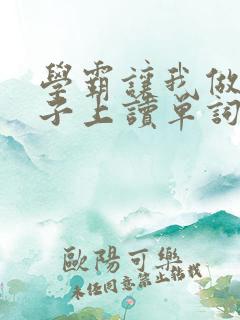 學霸讓我做
子上讀單詞
歐陽可樂
未经同意禁止転载